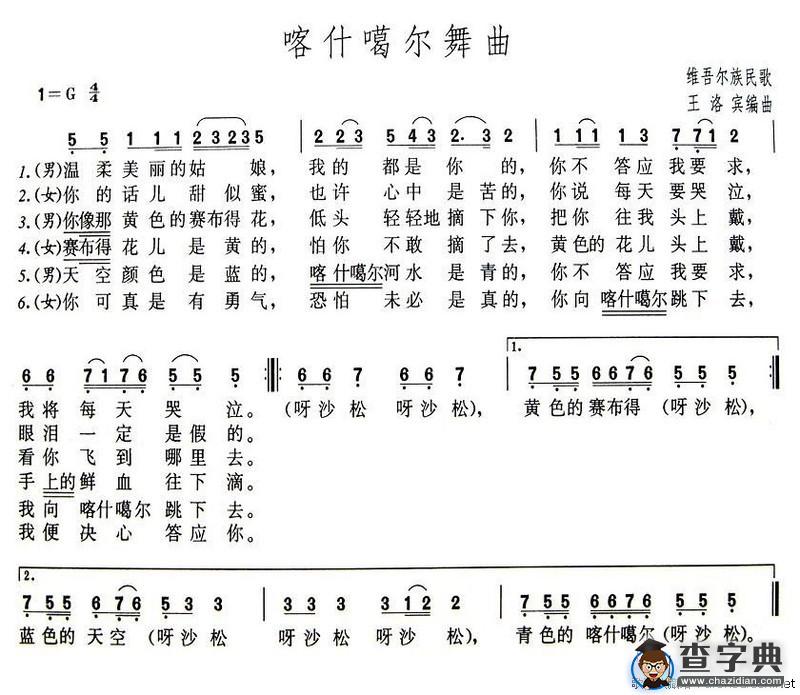 喀什噶尔舞曲
维吾尔族民歌
1=G 4/4
王洛宾编曲
5 5 1 11 23235 | 2 23 5 43 2.3 2 | 1 11 1 3 7 71 2 |
1.(男)温柔美丽的姑娘, 我的都是你的, 你不答应我要求,
2.(女)你的话儿甜似蜜, 也许心中是苦的, 你说每天要哭泣,
3.(男)你像那黄色的赛布得花, 低头轻轻地摘下你, 把你往我头上戴,
4.(女)赛布得花儿是黄的, 怕你不敢摘了去, 黄色的花儿头上戴,
5.(男)天空颜色是蓝的, 喀什噶尔河水是青的, 你不答应我要求,
6.(女)你可真是有勇气, 恐怕未必是真的, 你向喀什噶尔跳下去,
1.
6 6 7176 55 5 :‖: 6 6 7 6 6 7 | 7 55 6676 5 5 5 :‖
我将每天哭泣。 (呀沙松 呀沙松), 黄色的赛布得 (呀沙松),
眼泪一定是假的。
看你飞到哪里去。
手上的鲜血往下滴。
我向喀什噶尔跳下去。
我便决心答应你。
2.
7 55 6 76 5 5 5 | 3 3 3 3 12 2 | 7 55 6676 5 5 5
蓝色的天空 (呀沙松 呀沙松 呀沙松), 青色的喀什噶尔 (呀沙松)。
查字典
www.chazidian.com